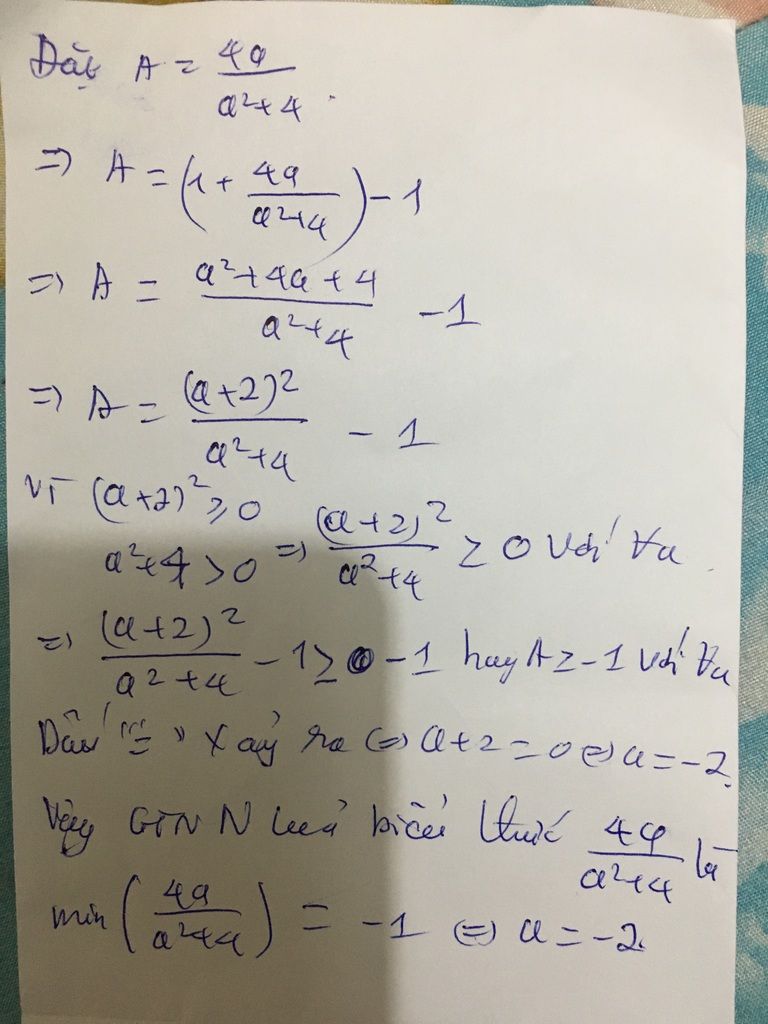 Đặt A = 4a/(a²+4).
=> A = (1 + 4a/(a²+4)) - 1
=> A = (a²+4a+4)/(a²+4) - 1
=> A = (a+2)²/(a²+4) - 1
Vì (a+2)² ≥ 0
a²+4 > 0 => (a+2)²/(a²+4) ≥ 0 với ∀a
=> (a+2)²/(a²+4) - 1 ≥ 0 - 1 hay A ≥ -1 với ∀a
Dấu "=" xảy ra <=> a+2=0 <=> a=-2.
Vậy GTNN của biểu thức 4a/(a²+4) là
min (4a/(a²+4)) = -1 <=> a=-2.